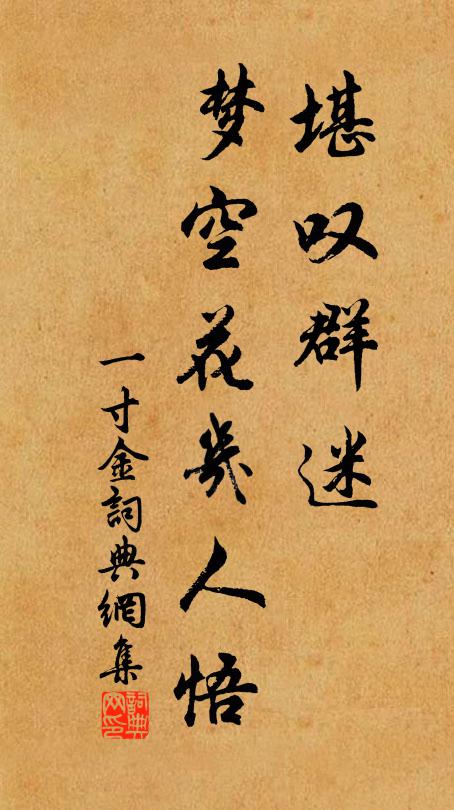 堪叹群迷
梦空花幾人悟
一寸金詞典網集
詞典
网印